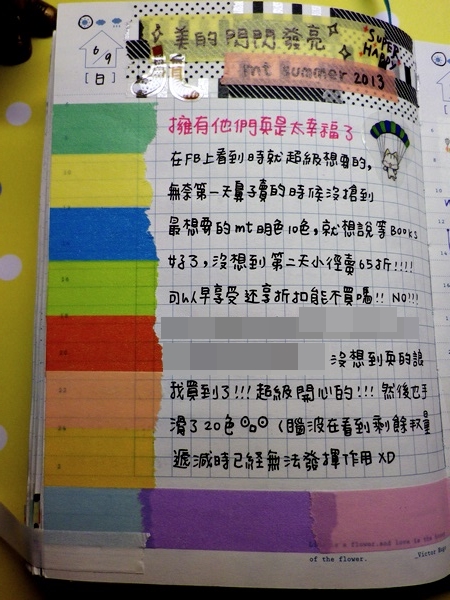 6/9
[日]
美的閃閃發亮
SUPER HAPPY
mt summer 2013
擁有他們真是太幸福了
在FB上看到時就超級想要的,
無奈第一天鼻子賣的時候沒搶到
最想要的mt明色10色,就想說等BOOKS
好了,沒想到第二天小徑賣65折!!!!
可以早享受還享折扣能不買嗎!! NO!!!
沒想到真的讓
我買到了!!!超級開心的!!! 然後也手
滑了20色⊙o⊙ (腦波在看到剩餘數量
遞減時已經無法發揮作用XD
a flower and love is the
of the flower.
_Victor